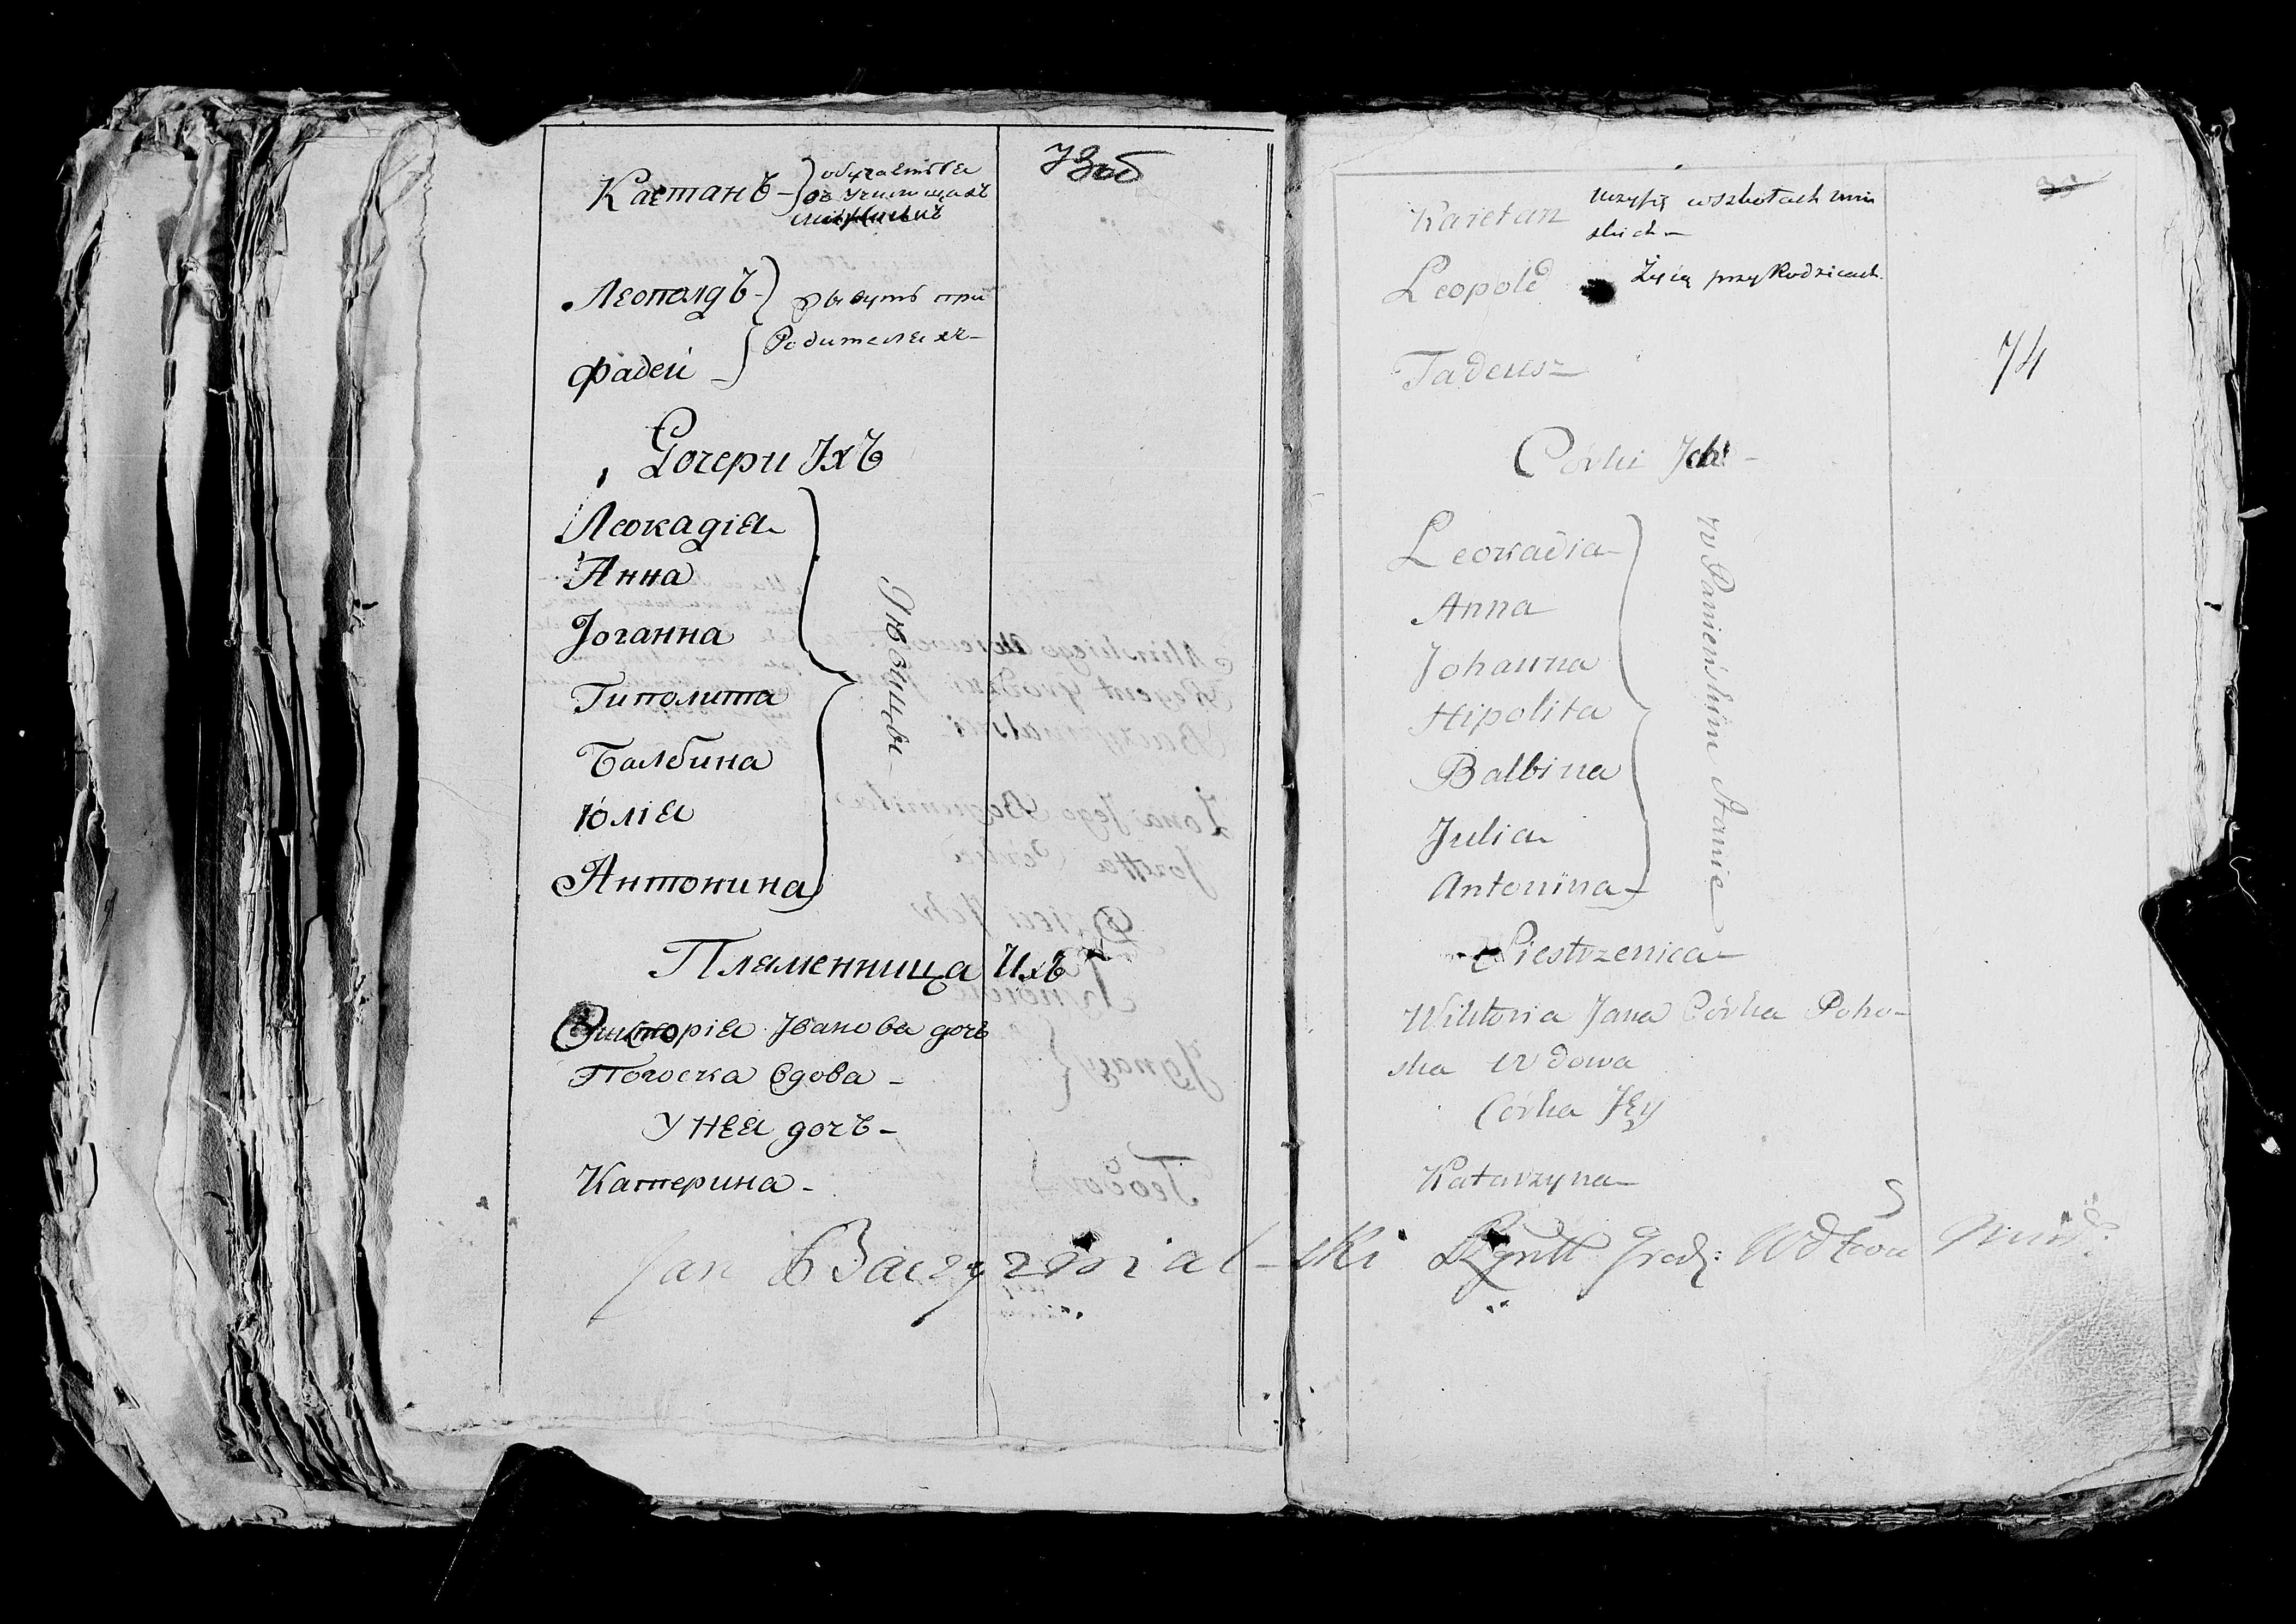 73об
Каетанъ – обучается
въ Училищахъ
Леополдъ – живутъ при
Родителяхъ –
Фадей –
Дочери Ихъ
Леокадія
Анна
Іоганна
Гиполита
Балбина
Юлія
Антонина
Дѣвицы
Племенница Ихъ
Викторія Іванова дочь
Погоска вдова –
У Нея дочь –
Катерина –
Jan Baczyzmalski Rgntt Grodz: Wdztwa Minś:
Kaietan uczy się w szkołach miń
skich –
Leopold Żyią przy Rodzicach
Tadeusz
74
Córki Ich –
Leokadia
Anna
Johanna
Hipolita
Balbina
Julia
Antonina
w Panieńskim Stanie
Siestrzenica –
Wiktoria Jana Córka Poho–
ska Wdowa
Córka Jey
Katarzyna –